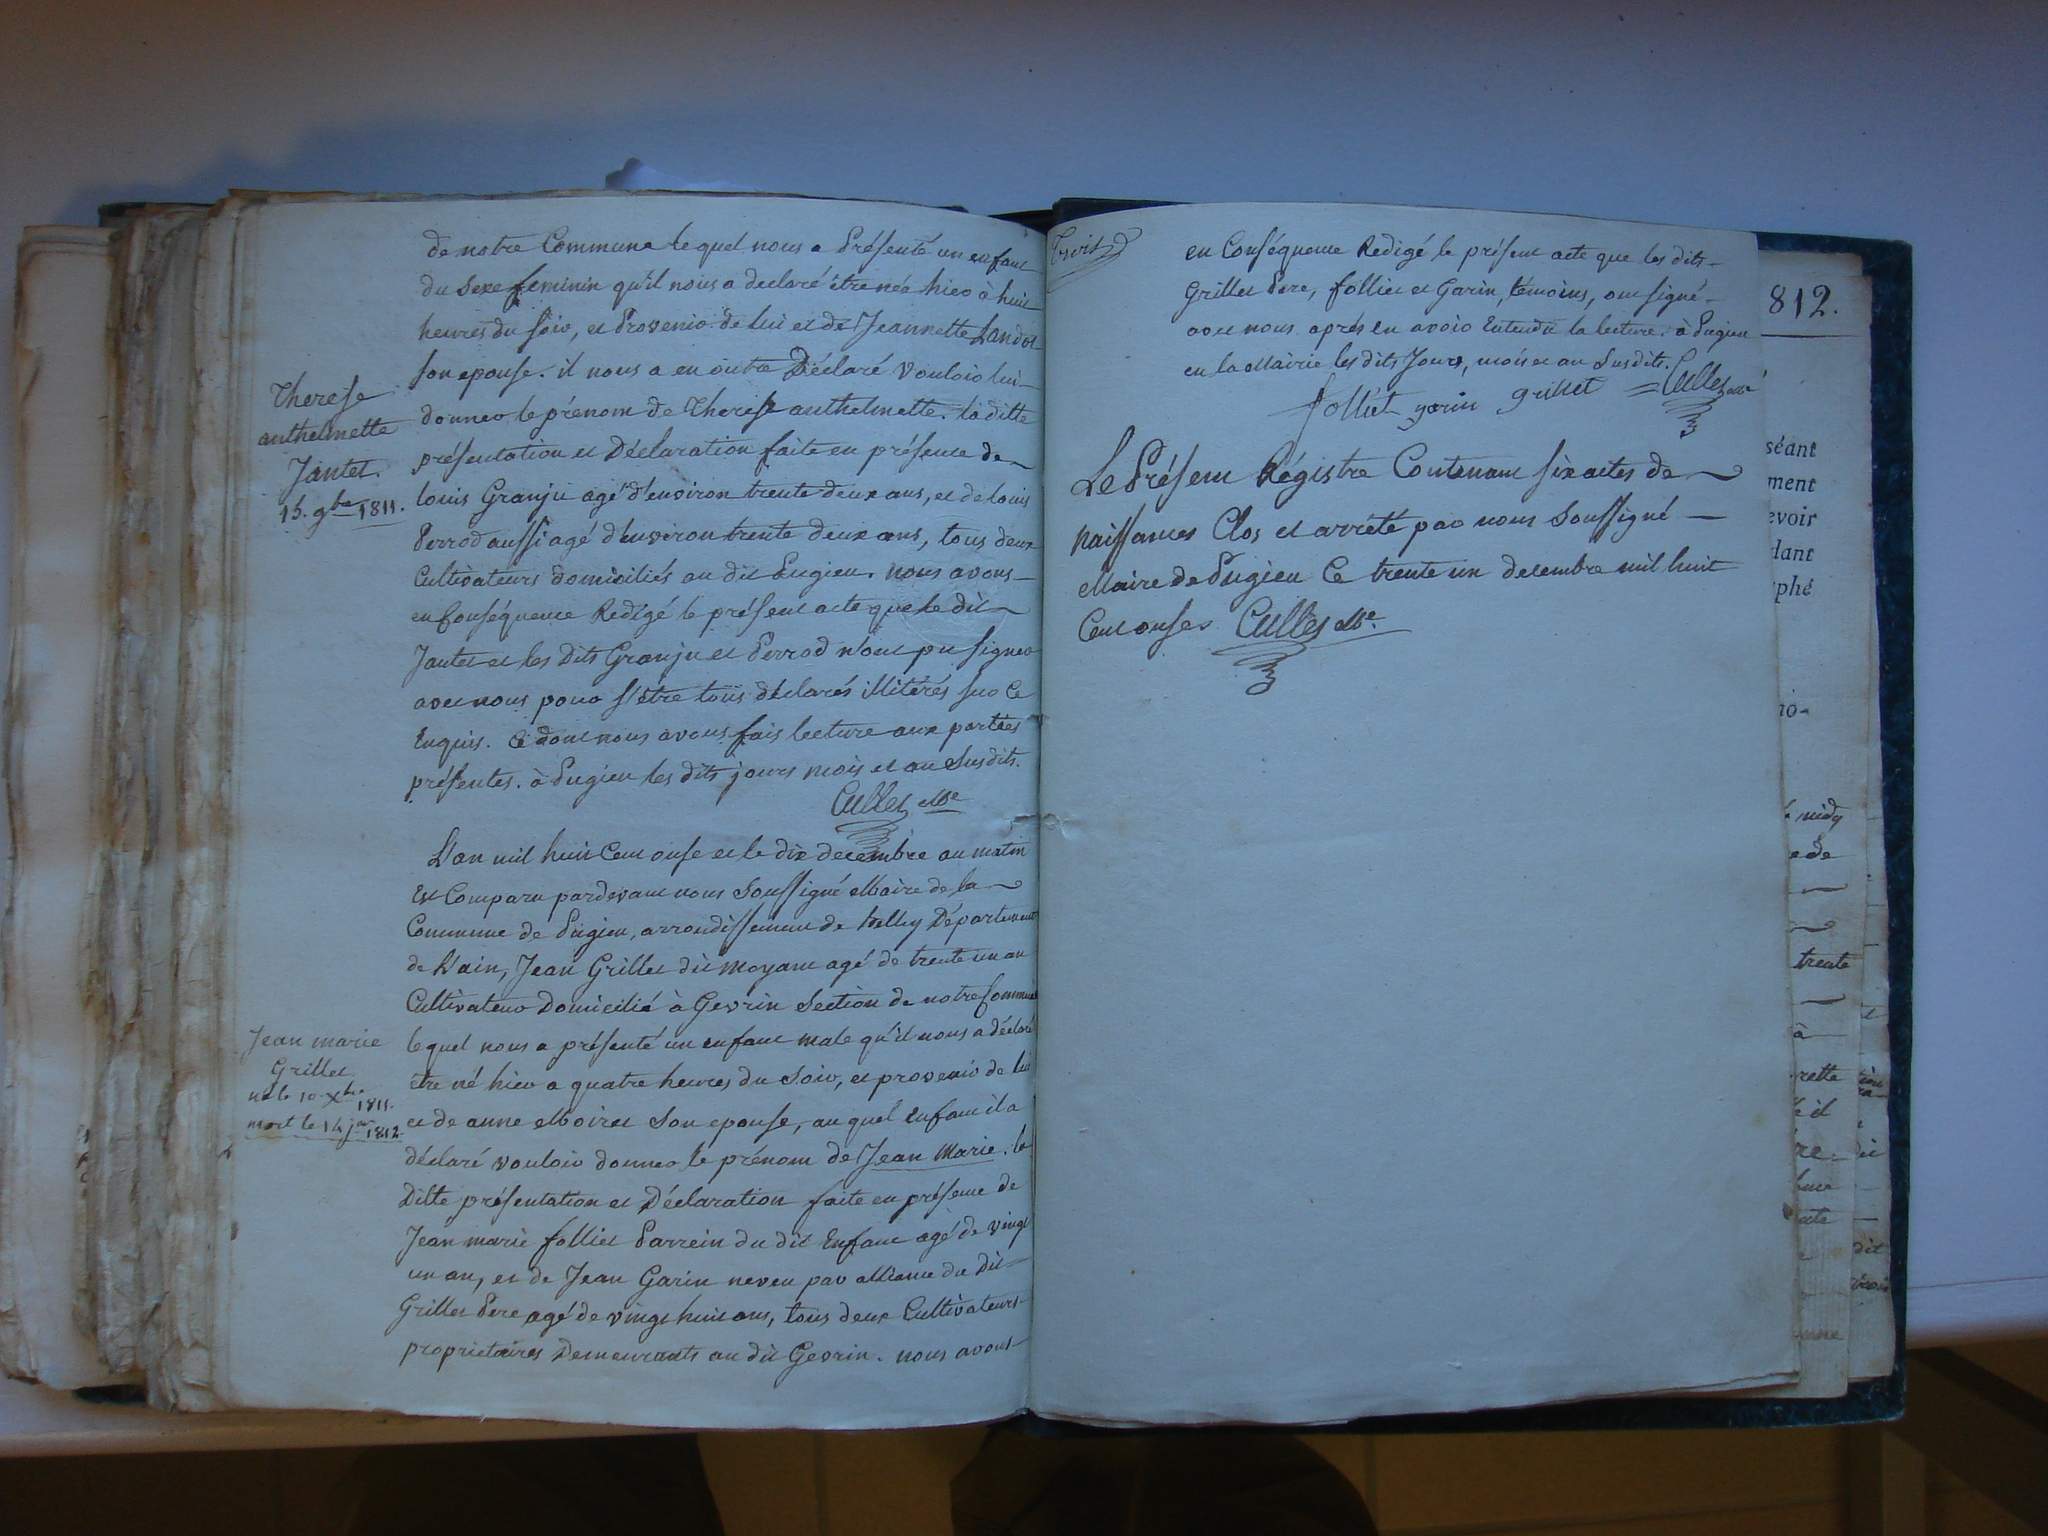 de notre Commune le quel nous a Présenté un enfant
du sexe feminin qu'il nous a declaré être née hier à huit
heures du soir, et Provenir de lui et de Jeannette Landot
son epouse. il nous a en outre Déclaré vouloir lui
donner le prénom de Therese anthelmette. la ditte
présentation et Déclaration faite en présence de
louis Granju agé d'environ trente deux ans, et de louis
Perrod aussi agé d'environ trente deux ans, tous deux
Cultivateurs domiciliés au dit Pugieu. nous avons
en Conséquence Redigé le présent acte que le dit
Jantet et les Dits Granju et Perrod n'ont pu signer
avec nous pour s'être tous déclarés illitérés sur ce
Enquis. Ce dont nous avons fais lecture aux parties
présentes. à Pugieu les dits jours mois et an susdits.
Cullet Me
Therese
anthelmette
Jantet.
15. 9bre 1811.
L'an mil huit Cent onse et le dix decembre au matin
Est Comparu pardevant nous Soussigné Maire de la
Commune de Pugieu, arrondissement de belley Département
de L'ain, Jean Grillet dit moyant agé de trente un an
Cultivateur Domicilié à Gevrin Section de notre Commune
lequel nous a présenté un enfant male qu'il nous a déclaré
être né hier a quatre heures du soir, et provenir de lui
et de anne Moiret son epouse, au quel enfant il a
déclaré vouloir donner le prénom de Jean Marie. la
Ditte présentation et Déclaration faite en présence de
Jean marie folliet Parrein du dit Enfant agé de vingt
un an, et de Jean Garin neveu par alliance du Dit
Grillet Pere agé de vingt huit ans, tous deux Cultivateurs
proprietaires Demeurants au dit Gevrin. nous avons
Jean marie
Grillet
né le 10 Xbre
1811.
mort le 14 jer
1812
en Conséquence Redigé le présent acte que les dits
Grillet Pere, folliet et Garin, témoins, ont signé
avec nous après en avoir Entendu la lecture. à Pugieu
en la Mairie les dits Jours, mois et an Susdits.
folliet garin grillet Cullet Me
Le Présent Régistre Contenant six actes de
naissances Clos et arrêté par nous Soussigné
Maire de Pugieu Ce trente un decembre mil huit
Cent onse. Cullet Me.
812.
séant
ment
evoir
dant
phé
midy
e de
trente
à
rette